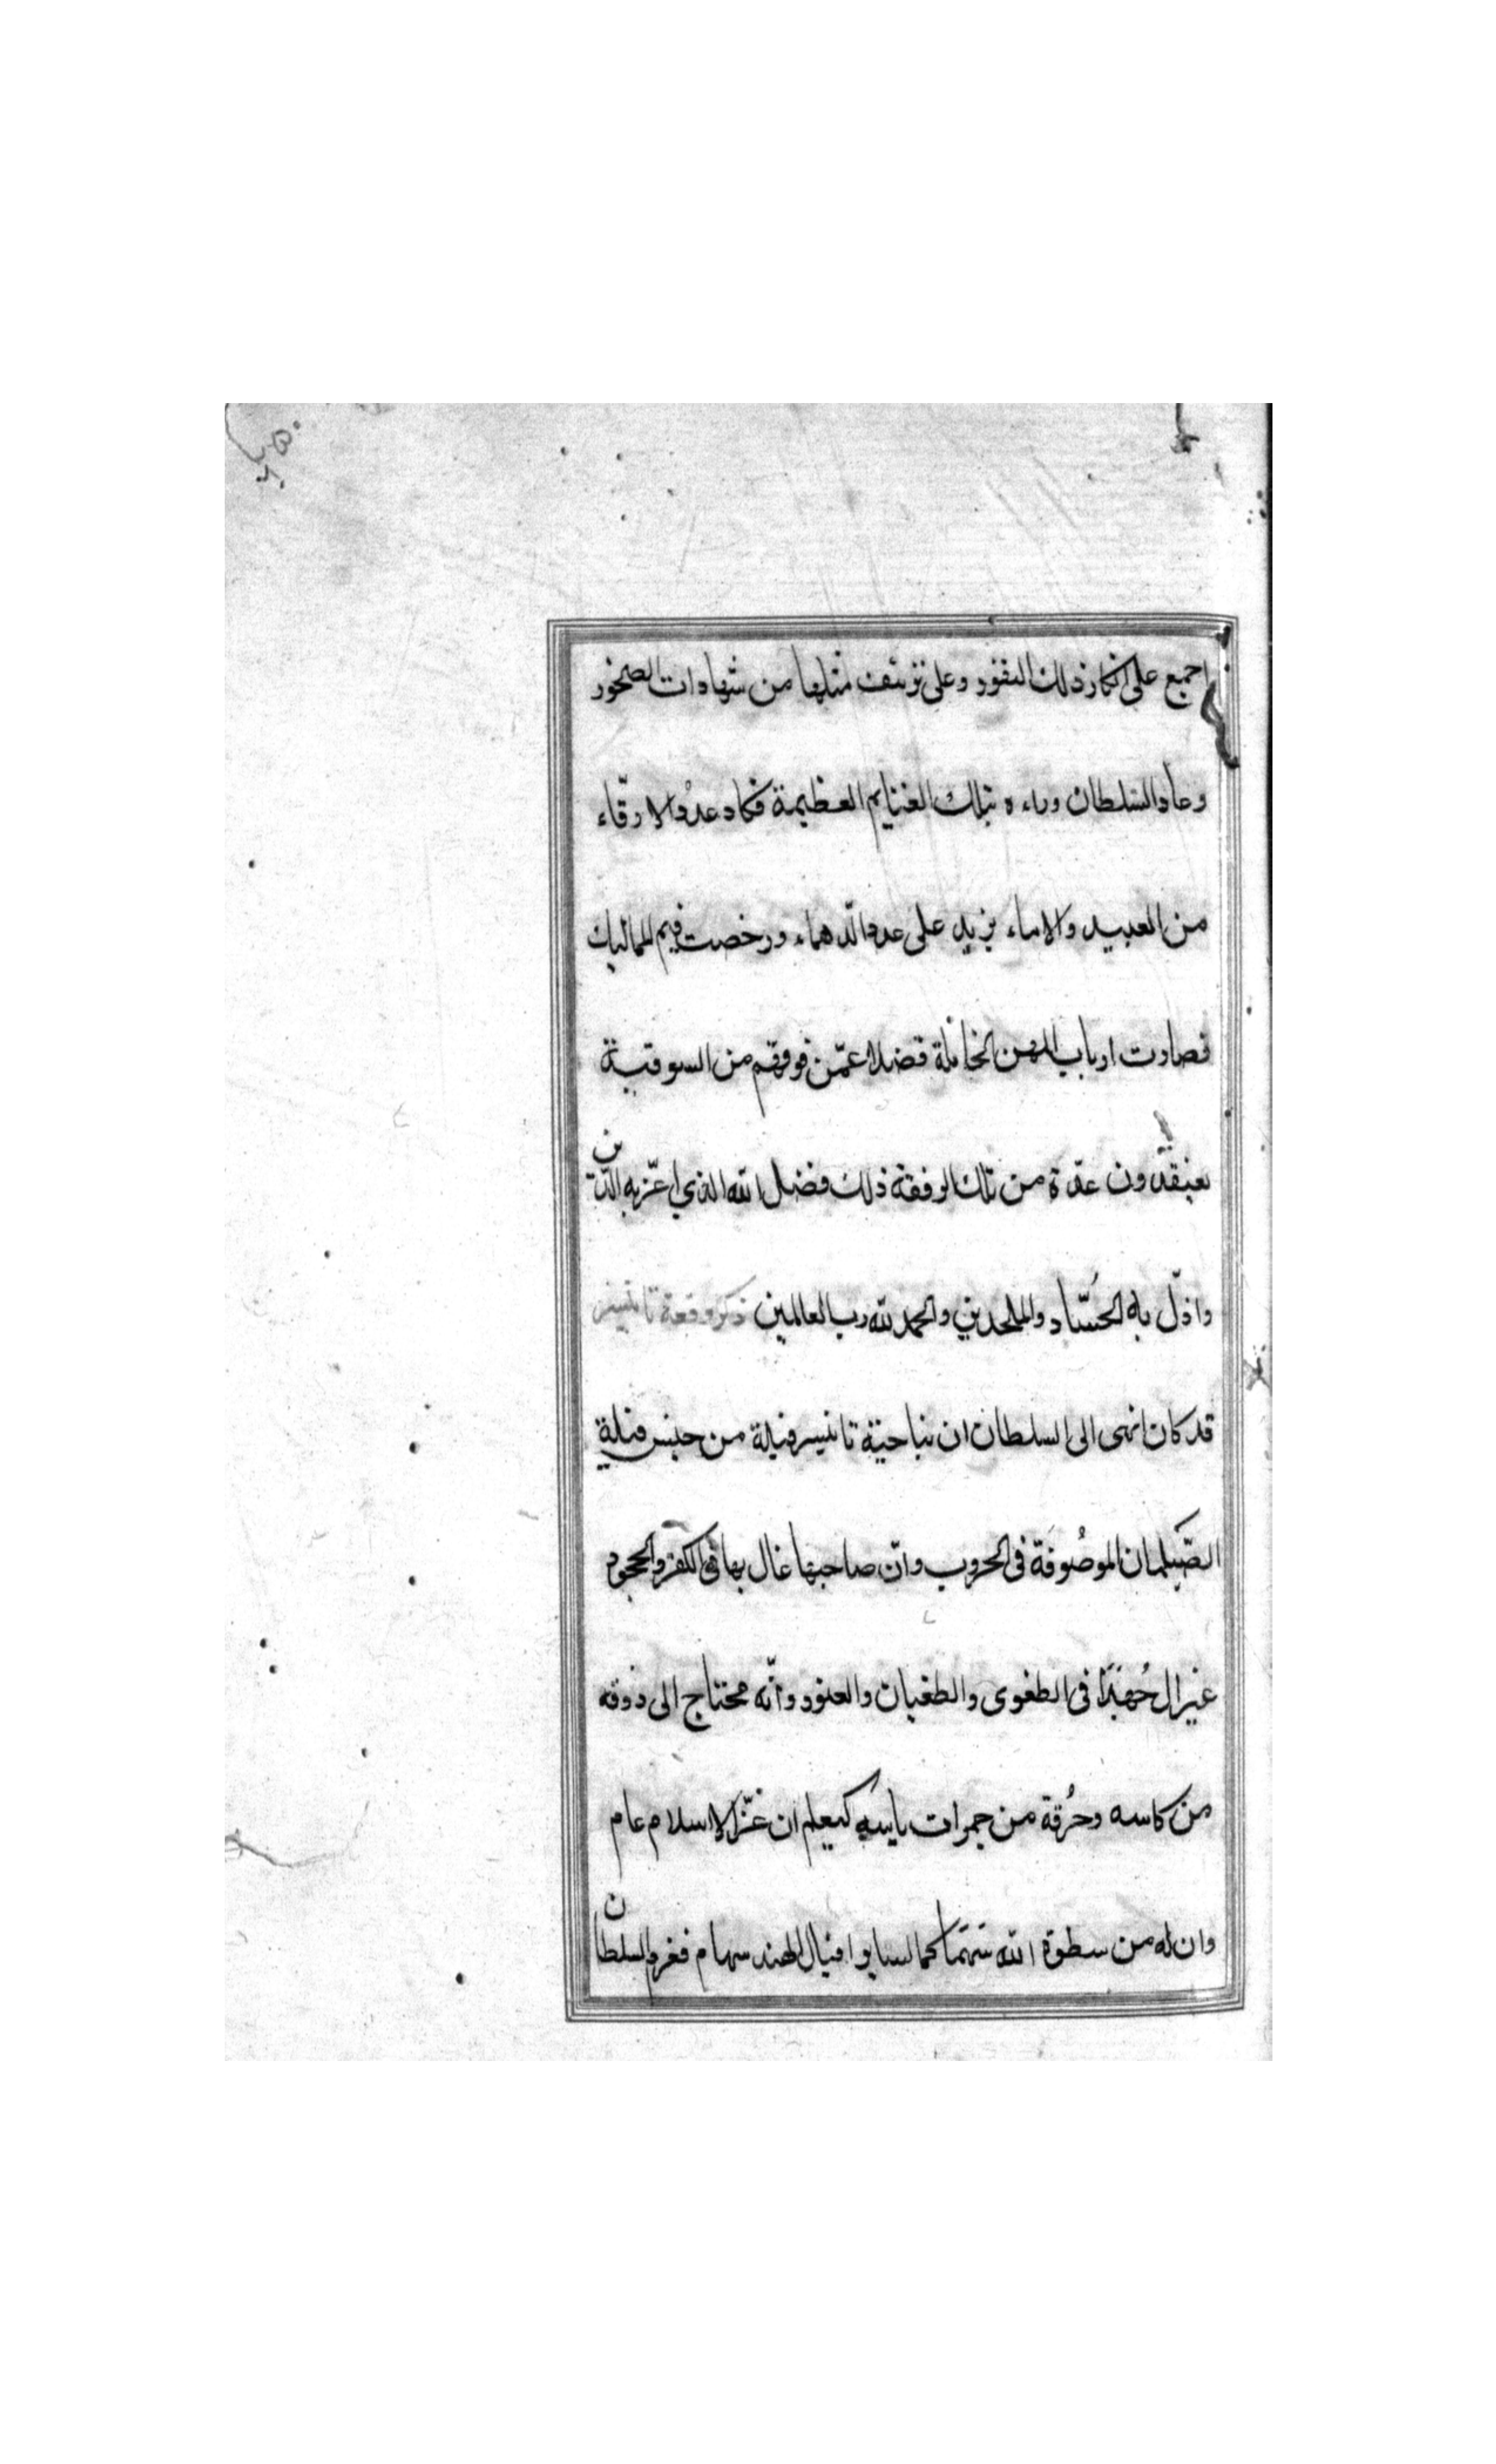 اجمع على انكار ذلك النقور وعلى تزييف مثلها من شهادات الصخور
وعاد السلطان وراءه بتلك الغنايم العظيمة فكاد عدد الارقّاء
من العبيد والاماء يزيد على عدد الدهماء ورخصت قيم المماليك
فصارت ارباب المهن الخاملة فضلا عمّن فوقهم من السوقية
يعتقدون عدّة من تلك الرفقة ذلك فضل الله الذي اعزّ به الدين
واذلّ به الحُسّاد والملحدين والحمد لله رب العالمين ذكر وقعة تانيسر
قد كان انهى الى السلطان ان بناحية تانيسر فيلة من جنس فيلة
الصّيلمان الموصُوفة فى الحروب وانّ صاحبها غال بها فى الكفر والجحود
غير ال جُهدًا فى الطغوى والطغيان والعنود وانّه محتاج الى ذوقه
من كاسه وحُرقة من جمرات باسه كيعلم ان عزّ الاسلام عام
وان له من سطوة الله سَهمَا كما لسايو افيال الهند سهام فغزم السلطان